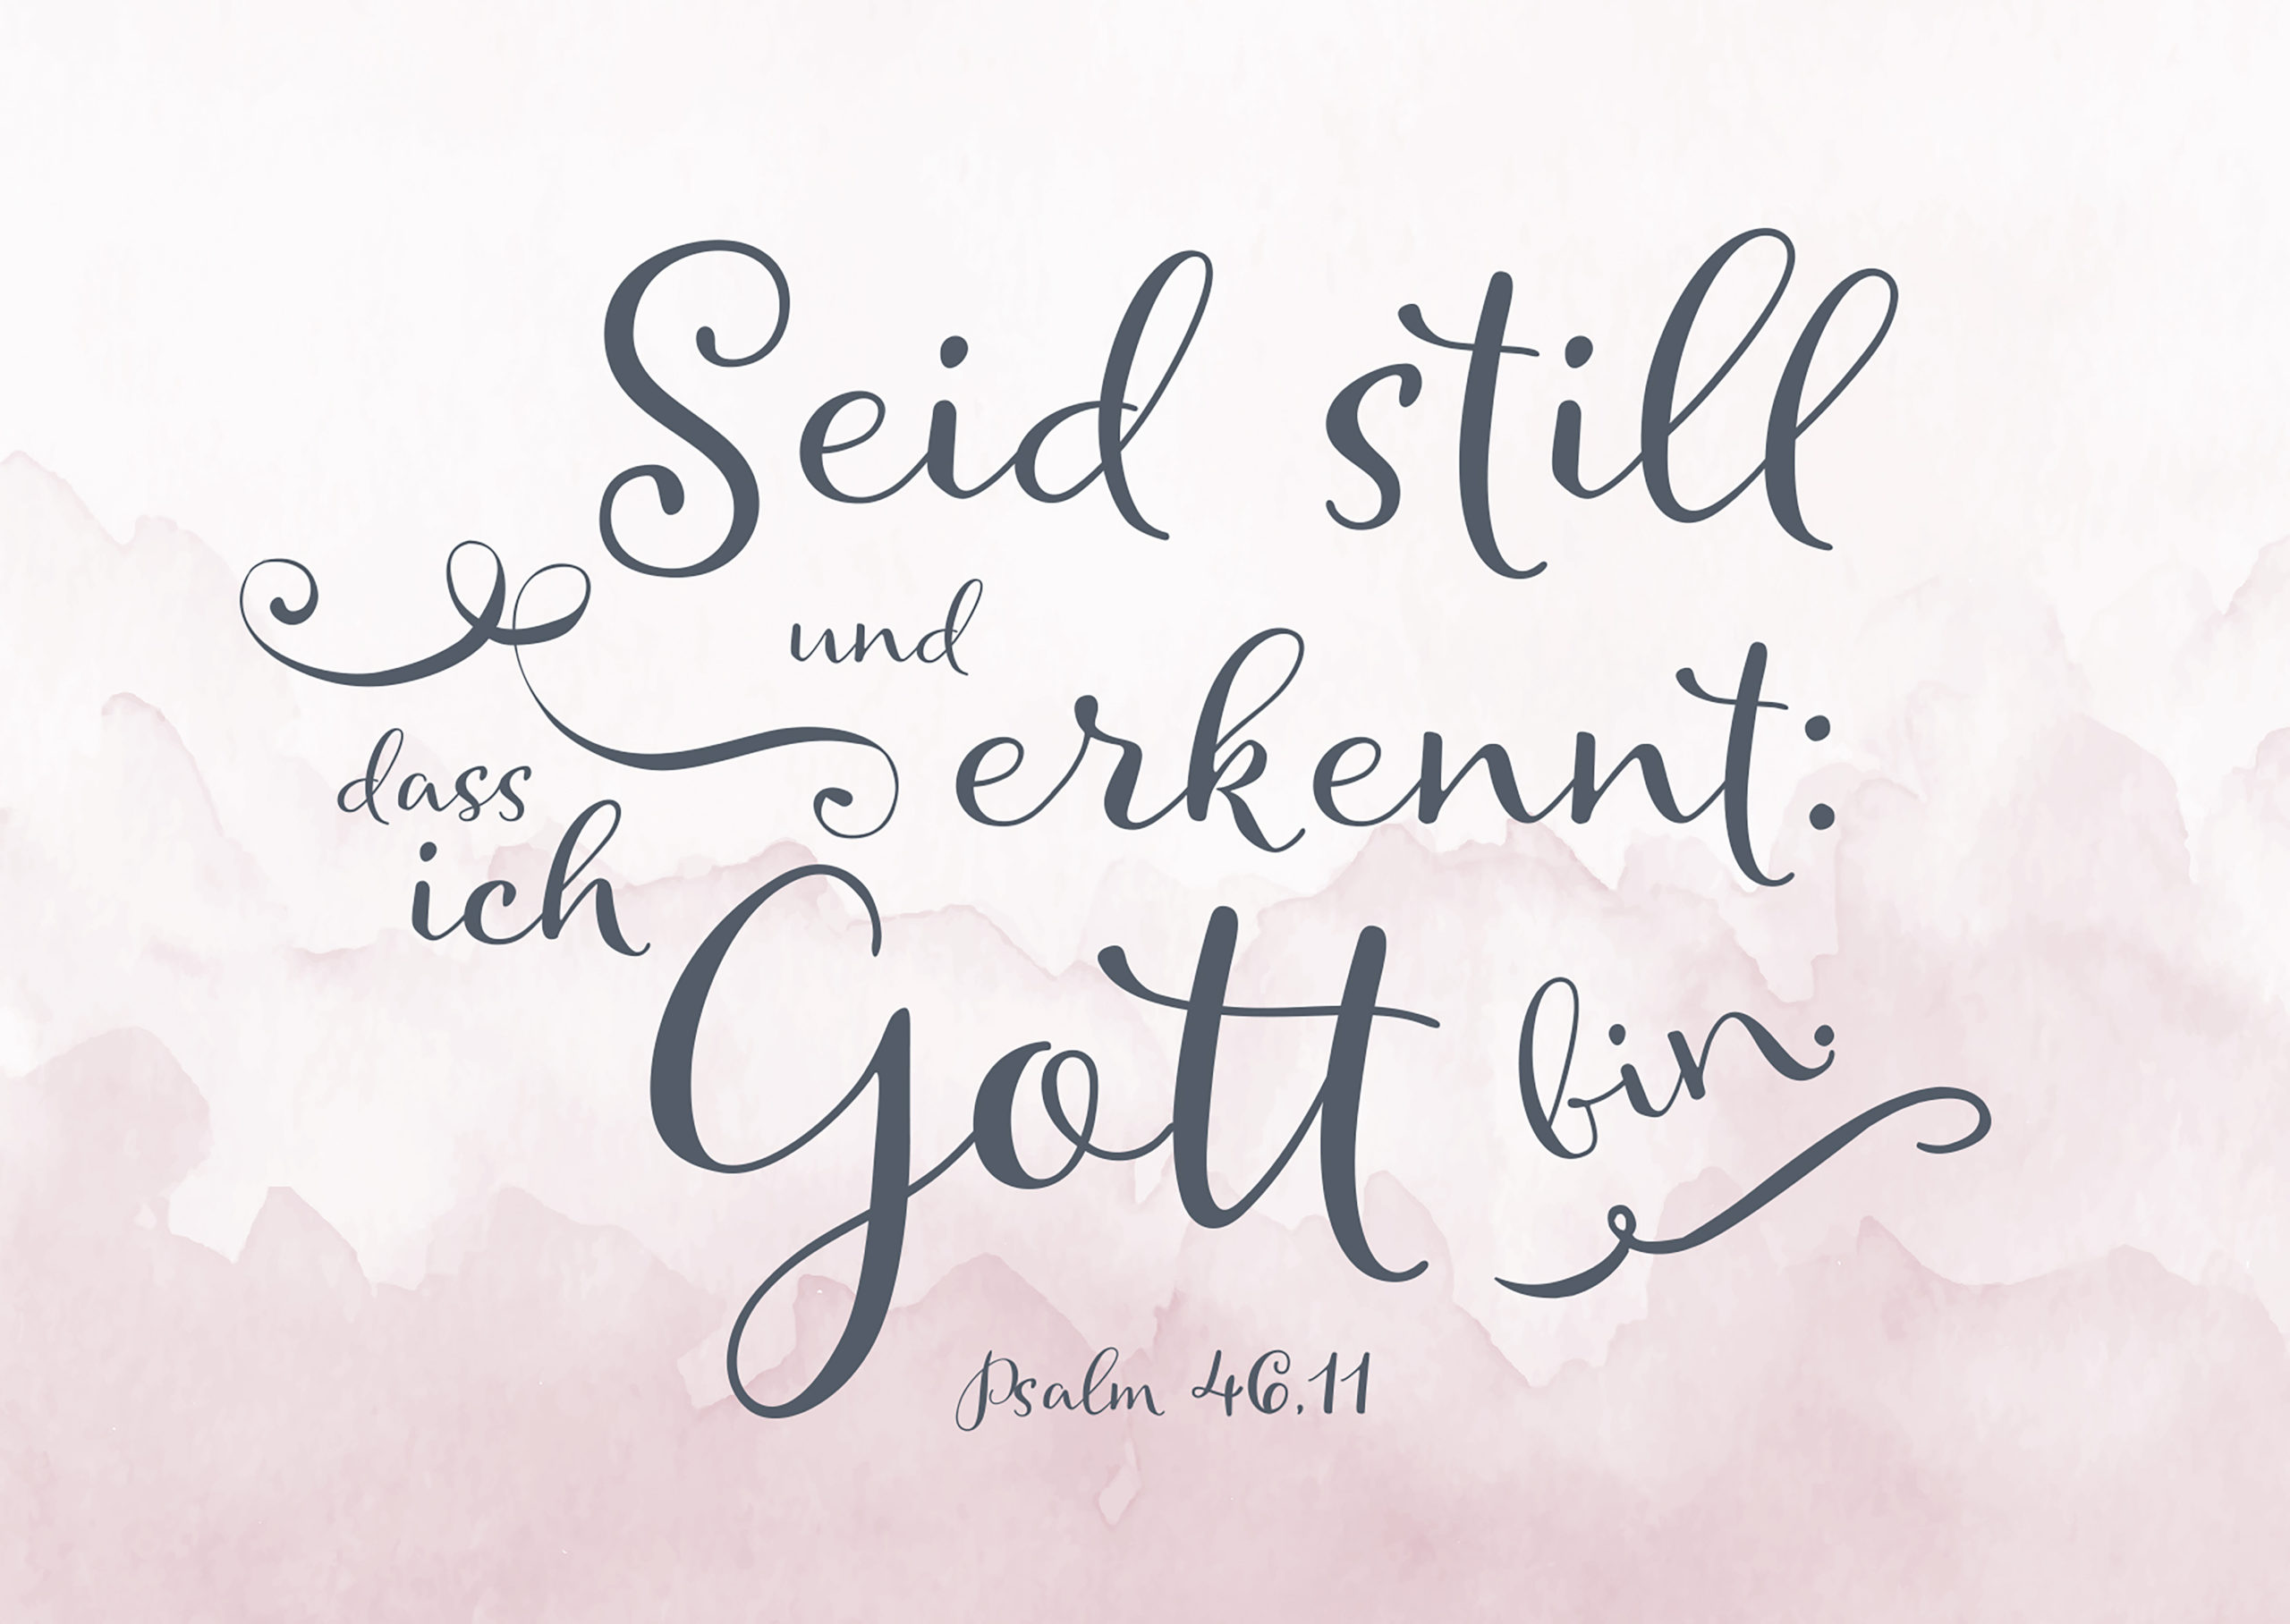 Seid still
und
erkennt:
dass
ich
Gott bin.
Psalm 46,11